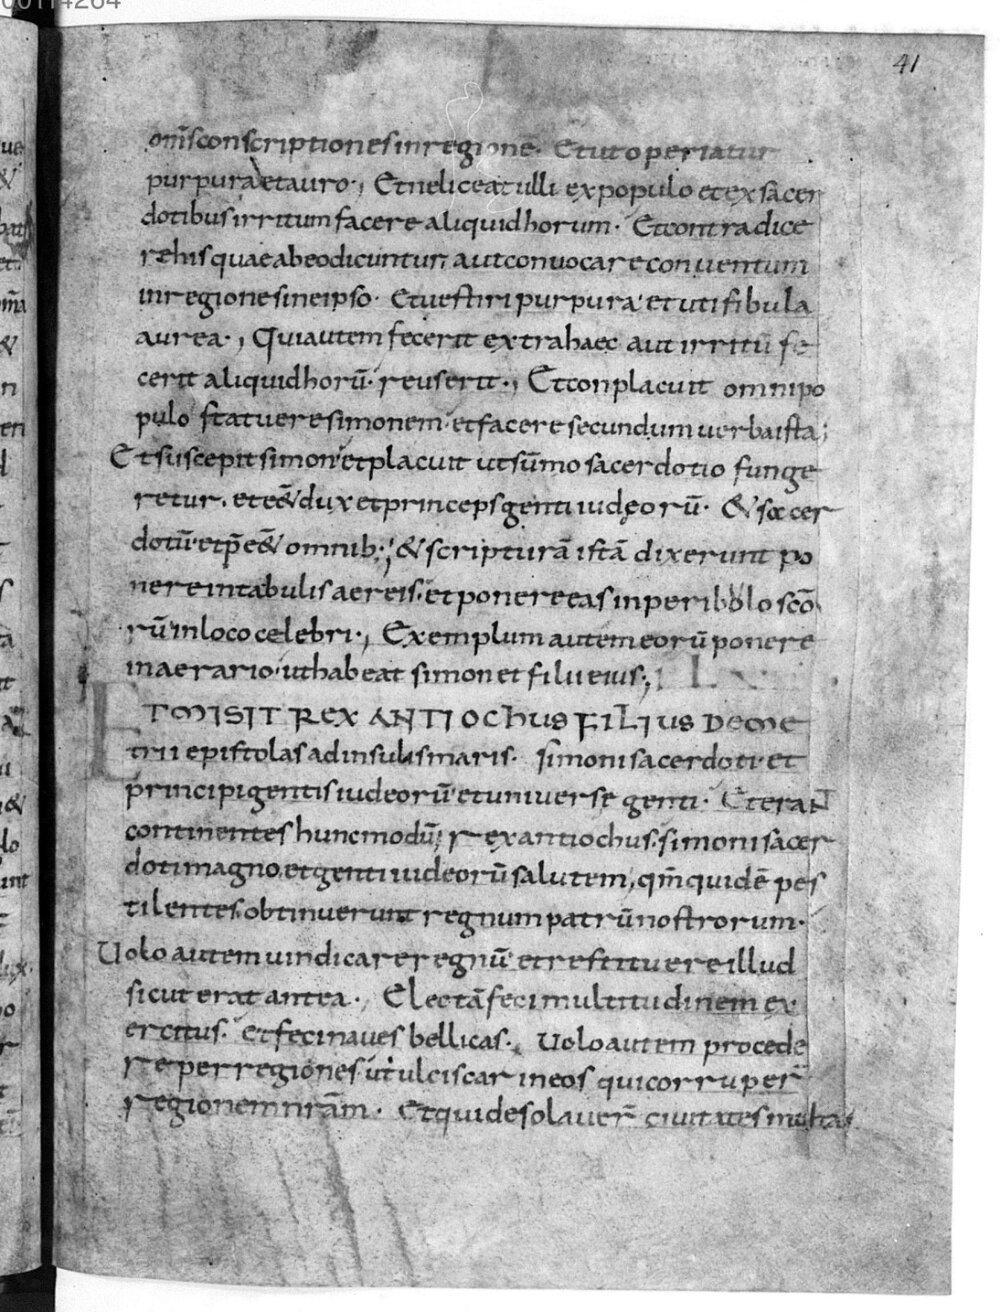 41
om̄s conscriptiones in regione. Et ut operiatur
purpura et auro., Et ne liceat ulli ex populo et ex sacer
dotibus irritum facere aliquid horum. Et contradice
re his quae ab eo dicuntur aut convocare conuentum
in regione sine ipso. Et uestiri purpura et uti fibula
aurea., Qui autem fecerit extra haec aut irritū fe
cerit aliquid horū. reus erit., Et conplacuit omni po
pulo statuere simonem et facere secundum uerba ista;
Et suscepit simon et placuit ut sūmo sacerdotio funge
retur. et eēt dux et princeps genti iudęorū. & sacer
dotū et p̄eēt omnib:; & scripturā istā dixerunt po
nere in tabulis aereis. et ponere eas in peribolo scō
rū in loco celebri., Exemplum autem eorū ponere
in aerario. ut habeat simon et filii eius.;
ET MISIT REX ANTIOChUS FILIUS DEME
trii epistolas ad insulis maris. simoni sacerdoti et
principi gentis iudeorū et uniuerse genti. Et erant
continentes hunc modū; rex antiochus. simoni sacer
doti magno. et genti iudeorū salutem, qm̄ quidē pes
tilentes. obtinuerunt regnum patrū nostrorum.
Uolo autem uindicare regnū et restituere illud
sicut erat antea., Electā feci multitudinem ex
ercitus. Et feci naues bellicas., Uolo autem procede
re per regiones ut ulciscar in eos qui corruper̄
regionem nr̄am. Et qui desolauer̄ ciuitates multas